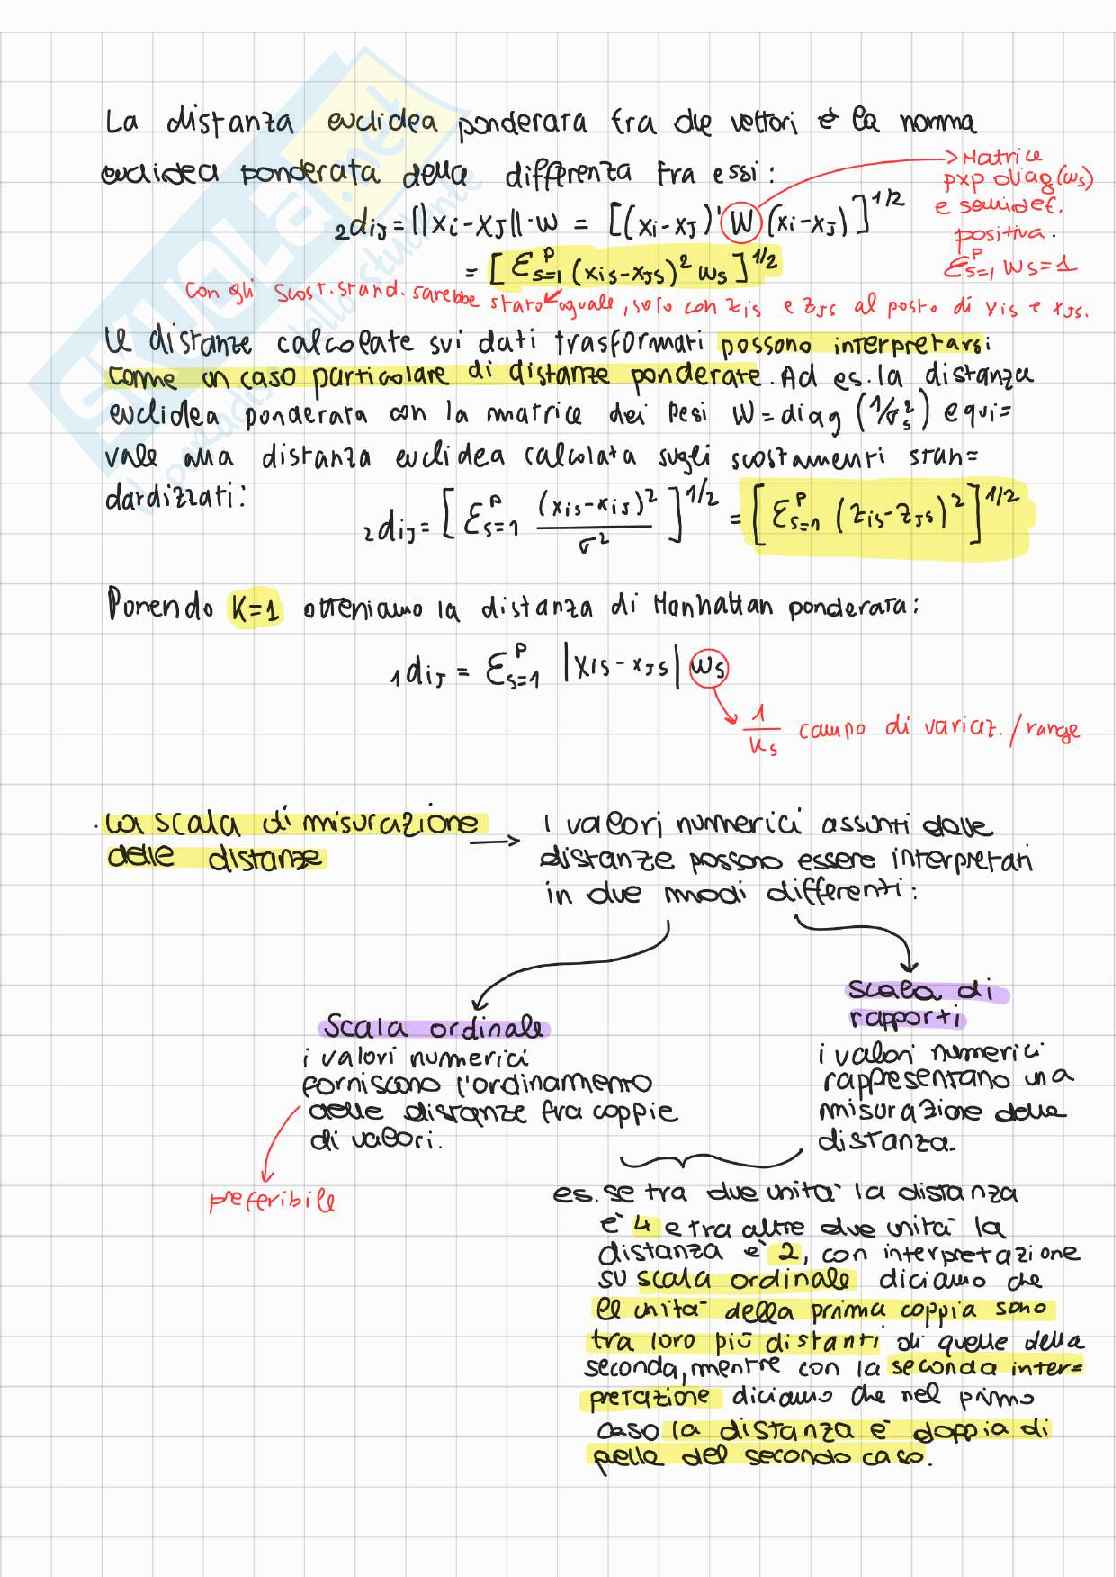 La distanza euclidea ponderata fra due vettori è la norma
euclidea ponderata della differenza fra essi:
→ Matrice
pxp diag(ws)
e semidef.
positiva.
Σ_{s=1}^p ws=1
₂dij = ||xi-xJ||·w = [(xi-xJ)' W (xi-xJ)]^{1/2}
= [Σ_{s=1}^p (xis-xJs)² ws]^{1/2}
con gli scost. stand. sarebbe stato uguale, solo con zis e zJs al posto di xis e xJs.
Le distanze calcolate sui dati trasformati possono interpretarsi
come un caso particolare di distanze ponderate. Ad es. la distanza
euclidea ponderata con la matrice dei pesi W = diag (1/σs²) equi=
vale alla distanza euclidea calcolata sugli scostamenti stan=
dardizzati:
₂diJ = [Σ_{s=1}^p (xis-xis)²/σ²]^{1/2} = [Σ_{s=1}^p (zis-zJs)²]^{1/2}
Ponendo K=1 otteniamo la distanza di Manhattan ponderata:
₁diJ = Σ_{s=1}^p |xis-xJs| ws
1/Ks campo di variaz. / range
. La scala di misurazione
delle distanze
→ i valori numerici assunti dalle
distanze possono essere interpretati
in due modi differenti:
Scala ordinale
i valori numerici
forniscono l'ordinamento
delle distanze fra coppie
di valori.
preferibile
scala di
rapporti
i valori numerici
rappresentano una
misurazione della
distanza.
es. se tra due unità la distanza
è 4 e tra altre due unità la
distanza è 2, con interpretazione
su scala ordinale diciamo che
le unità della prima coppia sono
tra loro più distanti di quelle della
seconda, mentre con la seconda inter=
pretazione diciamo che nel primo
caso la distanza è doppia di
quella del secondo caso.